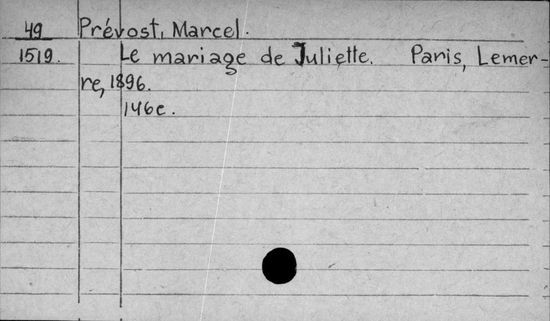 49 Prévost, Marcel.
1519. Le mariage de Juliette. Paris, Lemer-
re, 1896.
146e.